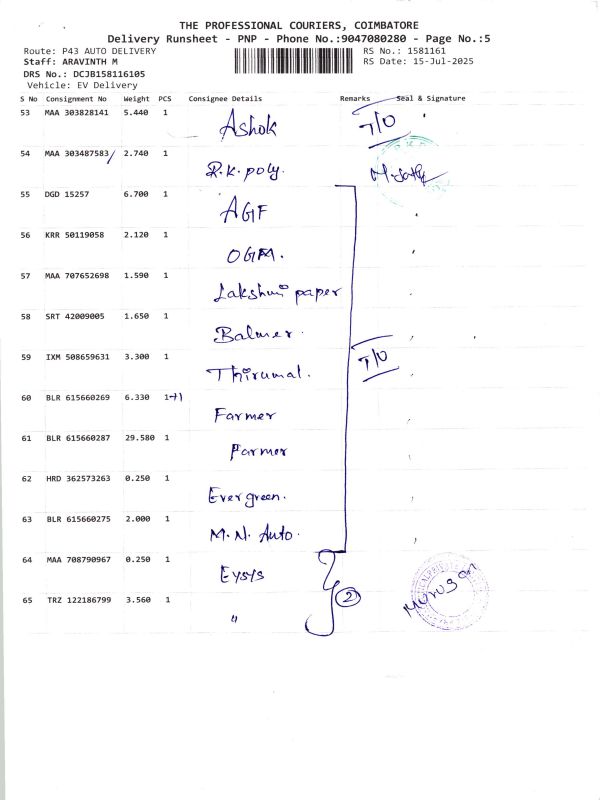 THE PROFESSIONAL COURIERS, COIMBATORE
Delivery Runsheet - PNP - Phone No.:9047080280 - Page No.:5
Route: P43 AUTO DELIVERY RS No.: 1581161
Staff: ARAVINTH M RS Date: 15-Jul-2025
DRS No.: DCJB158116105
Vehicle: EV Delivery
S No Consignment No Weight PCS Consignee Details Remarks Seal & Signature
53 MAA 303828141 5.440 1 Ashok T/O
54 MAA 303487583/ 2.740 1 R.K. poly.
55 DGD 15257 6.700 1 AGF
56 KRR 50119058 2.120 1 OGM.
57 MAA 707652698 1.590 1 Lakshmi paper
58 SRT 42009005 1.650 1 Balmer.
59 IXM 508659631 3.300 1 Thirumal. T/O
60 BLR 615660269 6.330 1+1 Farmer
61 BLR 615660287 29.580 1 Farmer
62 HRD 362573263 0.250 1 Evergreen.
63 BLR 615660275 2.000 1 M.N. Auto.
64 MAA 708790967 0.250 1 Eysys
65 TRZ 122186799 3.560 1 " 2 Murugan